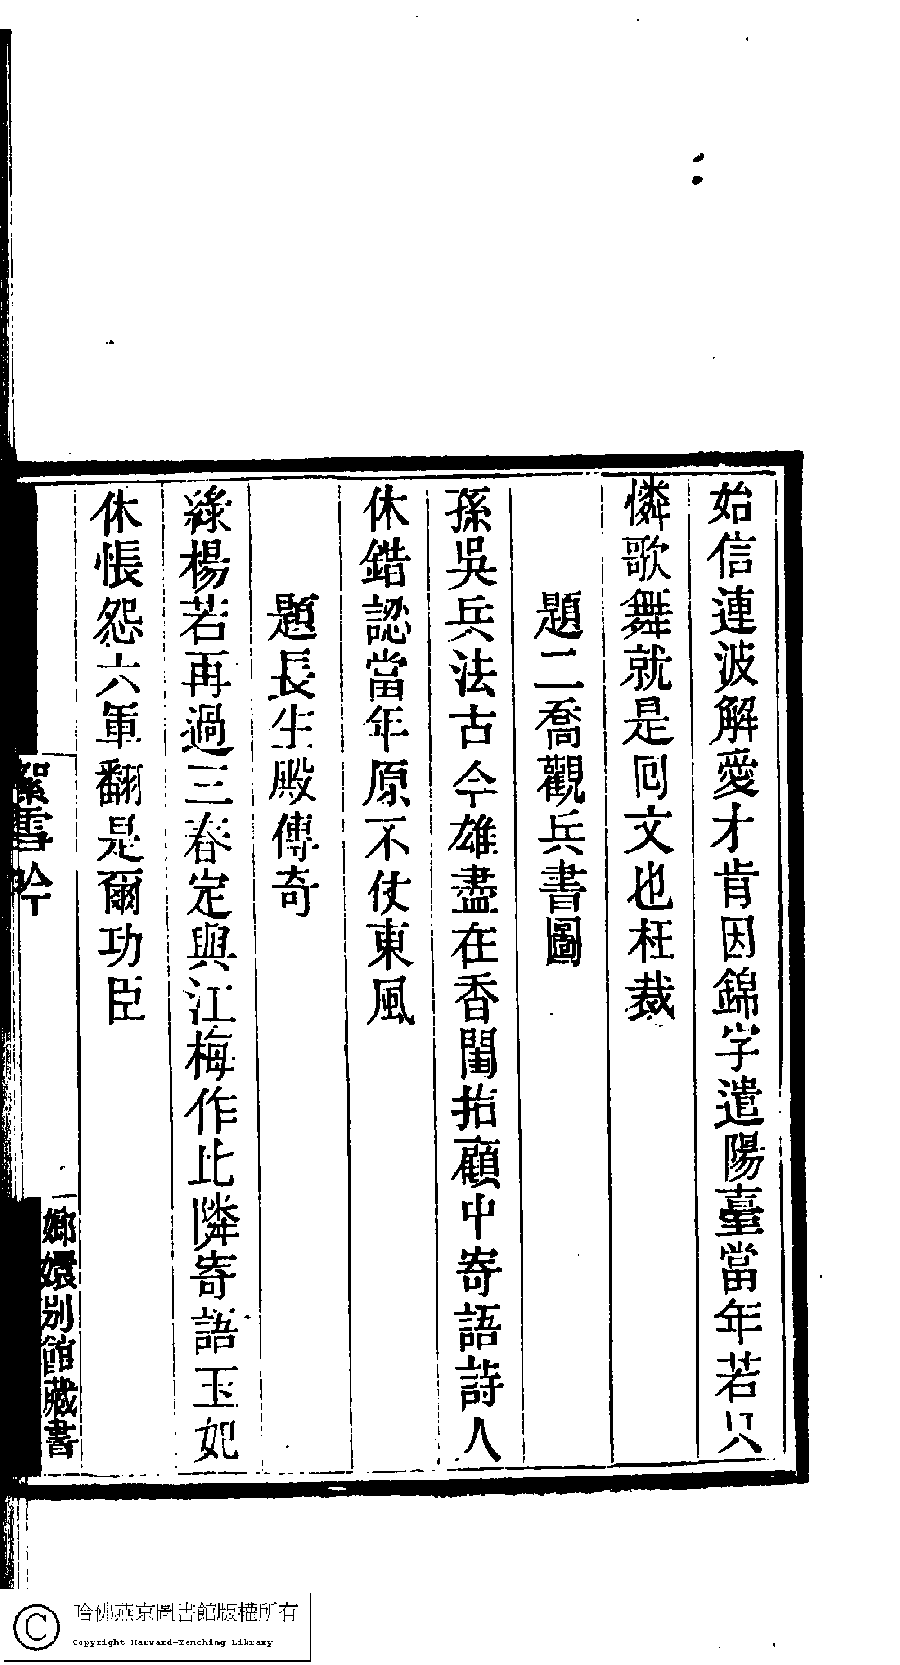 始信連波解愛才肯因錦字遣陽臺當年若只
憐歌舞就是回文也枉裁
題二喬觀兵書圖
孫吳兵法古今雄盡在香閨指顧中寄語詩人
休錯認當年原不仗東風
題長生殿傳奇
綠楊若再過三春定與江梅作比隣寄語玉妃
休悵怨六軍翻是爾功臣
絮雪吟
嫏嬛別館藏書
哈佛燕京圖書館版權所有
Copyright Harvard-Yenching Library